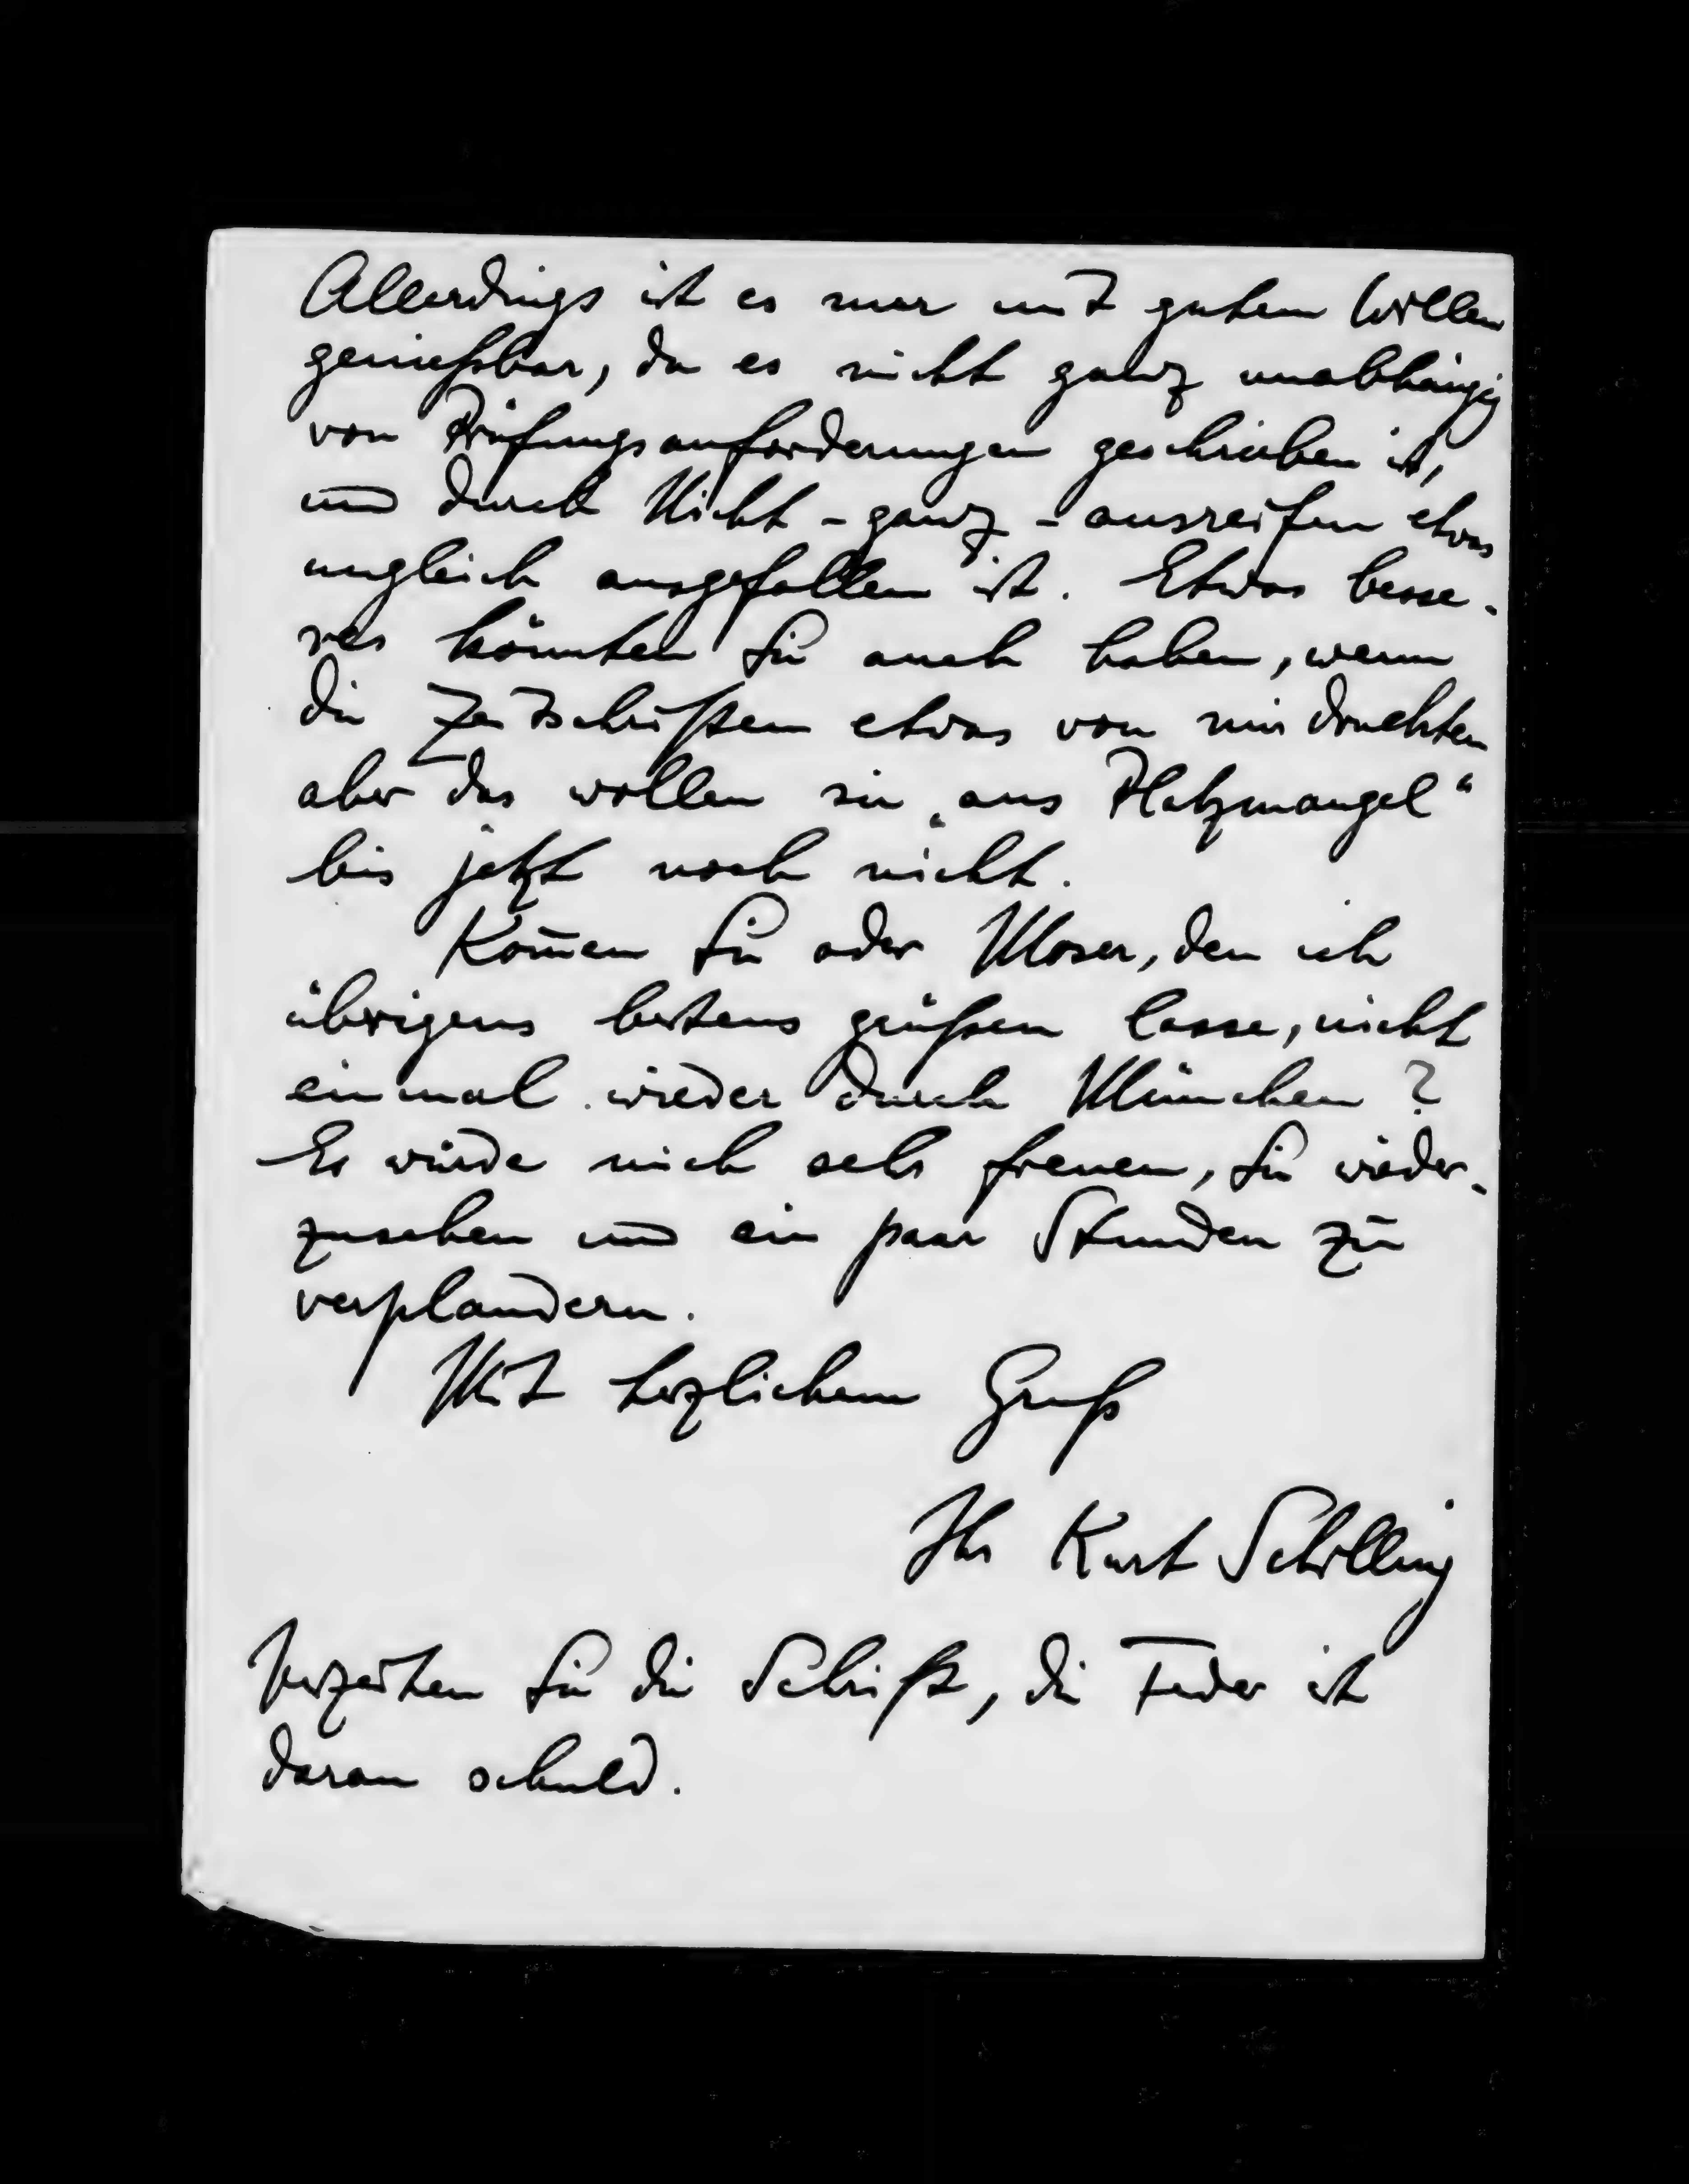 Allerdings ist es nur mit gutem Willen
genießbar, da es nicht ganz unabhängig
von Prüfungsanforderungen geschrieben ist,
und durch Nicht-ganz-ausreifen etwas
ungleich ausgefallen ist. Etwas besse-
res könnten Sie auch haben, wenn
die Zeitschriften etwas von mir druckten
aber das wollen sie „aus Platzmangel“
bis jetzt noch nicht.
Kom̄en Sie oder Moser, den ich
übrigens bestens grüßen lasse, nicht
einmal wieder durch München?
Es würde mich sehr freuen, Sie wieder-
zusehen und ein paar Stunden zu
verplaudern.
Mit herzlichem Gruß
Ihr Kurt Schilling
Verzeihen Sie die Schrift, die Feder ist
daran schuld.